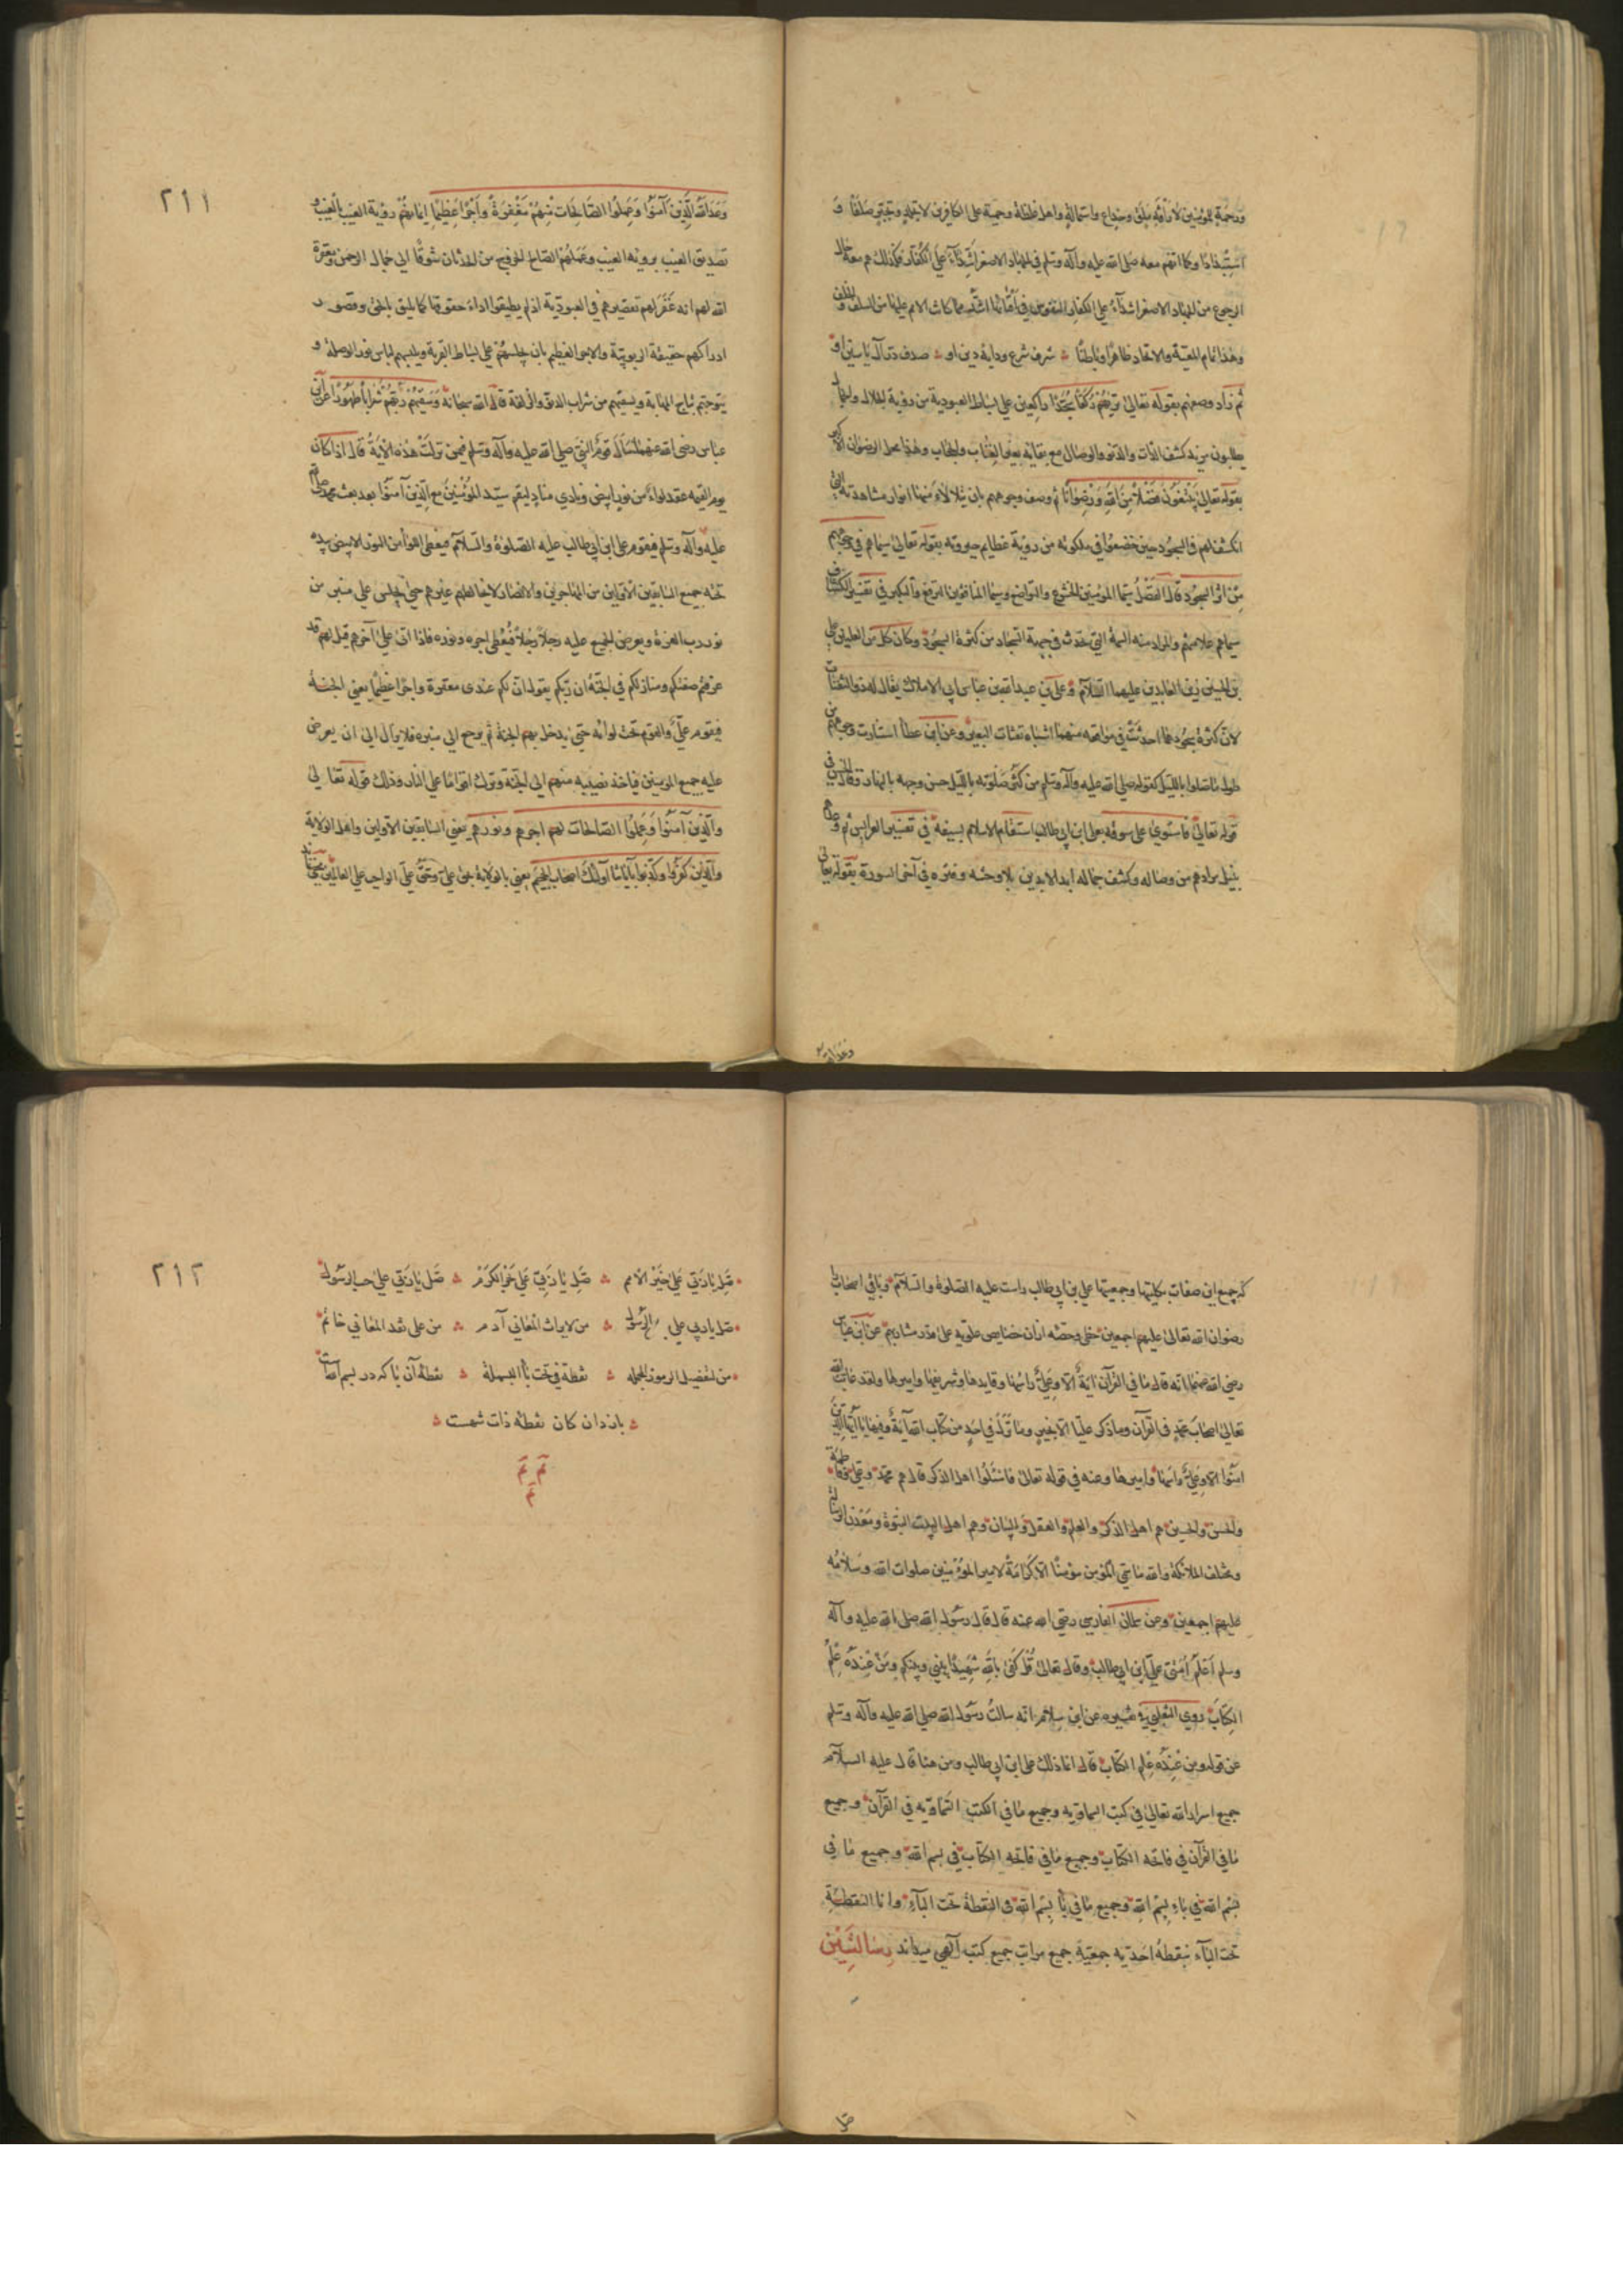 ورحمة للمؤمنين لا رأفة بملق وخداع واستمالة واهل غلظة وحمية على الكافرين لا بتجلد وتجبر صلفا و
استبدادا وكما انهم معه صلى الله عليه وآله وسلم في الجهاد الاصغر اشداء على الكفار فكذلك هم معه حال
الرجوع من الجهاد الاصغر اشداء على الكفار النفوس في آفاتها اشد مما كانت الامم عليها من السلف والخلف
وهذا تمام المعية والاتحاد ظاهرا وباطنا شرف شرع وداية دين او صدف در آل ياسين او
ثم زاد وصفهم بقوله تعالى تريهم ركعا سجدا راكعين على بساط العبودية من رؤية الجلال والجمال
يطلبون مزيد كشف الذات والدنو والوصال مع بقائه بغير العتاب والحجاب وهذا محل الرضوان الاكبر
بقوله تعالى يبتغون فضلا من الله ورضوانا ثم وصف وجوههم بان يتلألأ منها انوار مشاهدته التي
انكشف لهم في السجود حين خضعوا في ملكوته من رؤية عظايم جبروته بقوله تعالى سيماهم في وجوههم
من اثر السجود قال الفضل سيما المؤمنين الخشوع والتواضع وسيما المنافقين الترفع والتكبر في تفسير الكشاف
سيماهم علامتهم والمراد منه السمة التي تحدث في جبهة السجاد من كثرة السجود وكان كل من العليين علي
بن الحسين زين العابدين عليهما السلام وعلي بن عبد الله بن عباس ابي الاملاك يقال له ذو الثفنات
لان كثرة سجودهما احدثت في مواقعه منهما اشباه ثفنات البعير وعن ابن عطا استنارت وجوههم من
طول ما صلوا بالليل كقوله صلى الله عليه وآله وسلم من كثر صلوته بالليل حسن وجهه بالنهار وقال في
قوله تعالى فاستوى على سوقه بعلي ابن ابي طالب استقام الاسلام بسيفه في تفسير العرايس ثم وعدهم
بنيل مرادهم من وصاله وكشف جماله ابد الابدين بلا وحشة وفترة في آخر السورة بقوله تعالى
وعد الله
٢١١
وعد الله الذين آمنوا وعملوا الصالحات منهم مغفرة واجرا عظيما ايمانهم رؤية الغيب بالغيب و
تصديق الغيب برؤية الغيب وعملهم الصالح الخروج من الحدثان شوقا الى جمال الرحمن ومغفرة
الله لهم انه غفر لهم تقصيرهم في العبودية اذ لم يطيقوا اداء حقوقها كما يليق بالحق وقصور
ادراكهم حقيقة الربوبية والاجر العظيم بان يجلسهم على بساط القربة ويلبسهم لباس نور الوصلة و
يتوجهم بتاج المهابة ويسقيهم من شراب الدنو والزلفة قال الله سبحانه وسقيهم ربهم شرابا طهورا عن ابن
عباس رضى الله عنهما سأل قوم النبي صلى الله عليه وآله وسلم فيمن نزلت هذه الآية قال اذا كان
يوم القيمة عقد لواء من نور ابيض وينادي مناد ليقم سيد المؤمنين مع الذين آمنوا بعد بعث محمد صلى الله
عليه وآله وسلم فيقوم علي ابن ابي طالب عليه الصلوة والسلام فيعطى اللواء من النور الابيض بيده
تحته جميع السابقين الاولين من المهاجرين والانصار لا يخالطهم غيرهم حتى يجلس على منبر من
نور رب العزة ويعرض الجميع عليه رجلا رجلا فيعطى اجره ونوره فاذا اتى على آخرهم قيل لهم قد
عرفتم صفتكم ومنازلكم في الجنة ان ربكم يقول ان لكم عندي مغفرة واجرا عظيما يعني الجنة
فيقوم علي والقوم تحت لوائه حتى يدخل بهم الجنة ثم يرجع الى منبره فلا يزال الى ان يعرض
عليه جميع المؤمنين فياخذ نصيبه منهم الى الجنة ويترك اقواما على النار وذلك قوله تعالى
والذين آمنوا وعملوا الصالحات لهم اجرهم ونورهم يعني السابقين الاولين واهل الولاية
والذين كفروا وكذبوا بآياتنا اولئك اصحاب الجحيم يعني بالولاية بحق علي وحق علي الواجب على العالمين
كه جميع اين صفات بكليتها وجمعيتها علي بن ابي طالب راست عليه الصلوة والسلام وباقي اصحاب
رضوان الله تعالى عليهم اجمعين حظي وحصه ازان خصايص علويه على قدر مشاربهم عن ابن عباس
رضي الله عنهما انه قال ما في القرآن آية الا وعلي رأسها وقايدها وشريفها واميرها ولقد عاتب الله
تعالى اصحاب محمد في القرآن وما ذكر عليا الا بخير وما نزل في احد من كتاب الله آية وفيها يا ايها الذين
امنوا الا وعلي رأسها واميرها وعنه في قوله تعالى فاسئلوا اهل الذكر قال هم محمد وعلي وفاطمة
والحسن والحسين هم اهل الذكر والعلم والعقل والبيان وهم اهل البيت النبوة ومعدن الرسالة
ومختلف الملائكة والله ما سمى المؤمن مؤمنا الا كرامة لامير المؤمنين صلوات الله وسلامه
عليهم اجمعين وعن سلمان الفارسي رضي الله عنه قال قال رسول الله صلى الله عليه وآله
وسلم اعلم امتي علي ابن ابي طالب وقال تعالى قل كفى بالله شهيدا بيني وبينكم ومن عنده علم
الكتاب روى الثعلبي في تفسيره عن ابن سلام انه سالت رسول الله صلى الله عليه وآله وسلم
عن قوله ومن عنده علم الكتاب قال انما ذلك علي ابن ابي طالب ومن هنا قال عليه السلام
جميع اسرار الله تعالى في كتب السماويه وجميع ما في الكتب السماويه في القرآن وجميع
ما في القرآن في فاتحه الكتاب وجميع ما في فاتحه الكتاب في بسم الله وجميع ما في
بسم الله في باء بسم الله وجميع ما في باء بسم الله في النقطة تحت الباء وانا النقطة
تحت الباء بنقطة احديه جمعية جميع مراتب جميع كتب آلهي ميداند
صل
٢١٢
صل يا ربي على خير الامم صل يا ربي على بحر الكرم صل يا ربي على حب الرسول
صل يا ربي على من لايراث المغاني آدم من على نقد المغاني خاتم
من لتفصيل الرموز الجمله نقطة في تحت باء البسملة نقطهٔ آن با كه در بسم الله است
بازدان كان نقطه ذات شهست
تم تم
تم